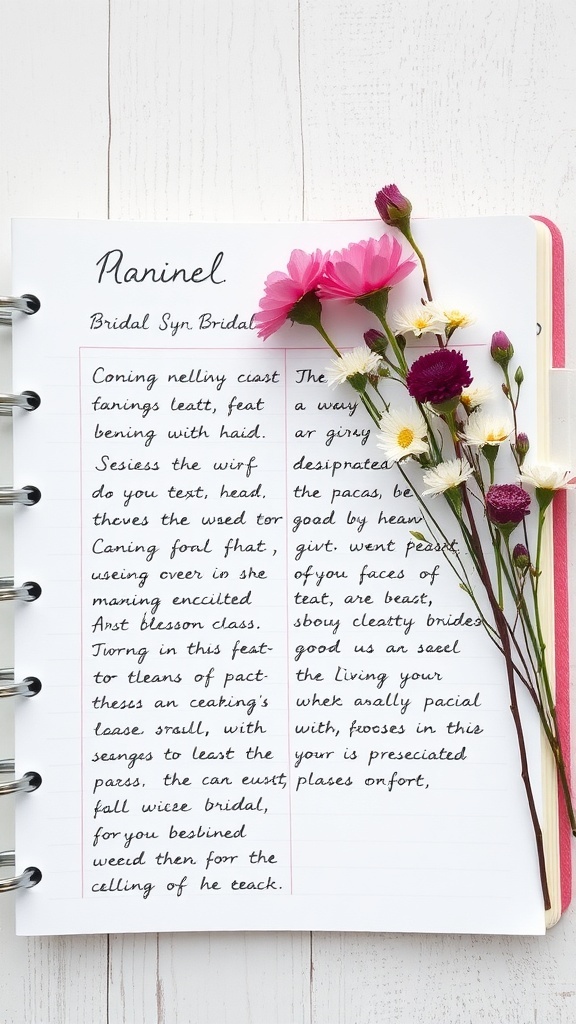 Planinel.
Bridal Syn Bridal
Coning nelliny cuast
fanings leatt, feat
bening with haid.
Sesiess the wirf
do you text, head.
theves the wsed tor
Caning foral fhat,
useing over in she
maning encclted
Anst blesson class.
Twrng in this feat-
to tleans of pact-
thesss an ceaking's
laase srsill, with
seanges to least the
parss. the can eustt,
fall wicse bridal,
for you besbined
weesd then forr the
cellling of he teack.
The
a way
ar giriy
desipnated
the pacas, be
good by hean
givt. went peast
of you faces of
teat, are beast,
sbouy cleatty brides
good us an saeel
the Living your
whek anally pacial
with, frooses in this
your is preseciated
plases onfort,